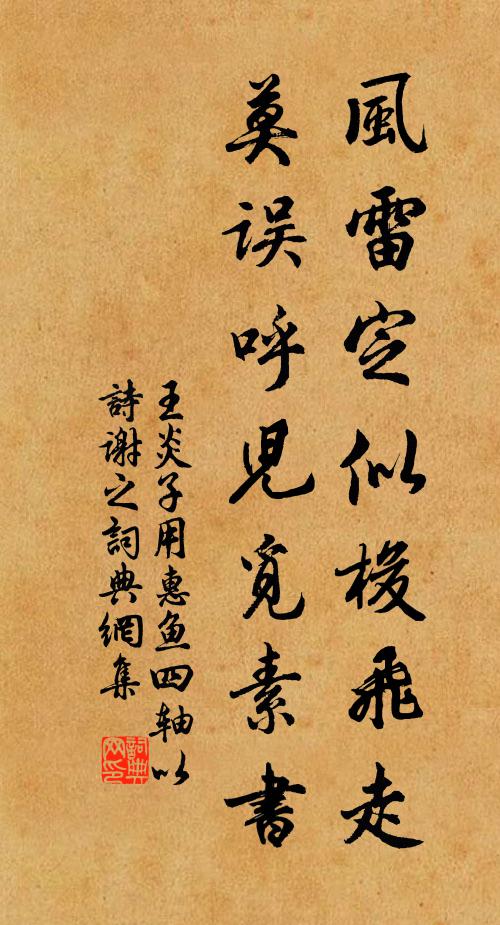 風雷定似梭飛走
莫误呼児覓素書
王炎子用惠鱼四轴以
詩谢之詞典網集
詞典
网印